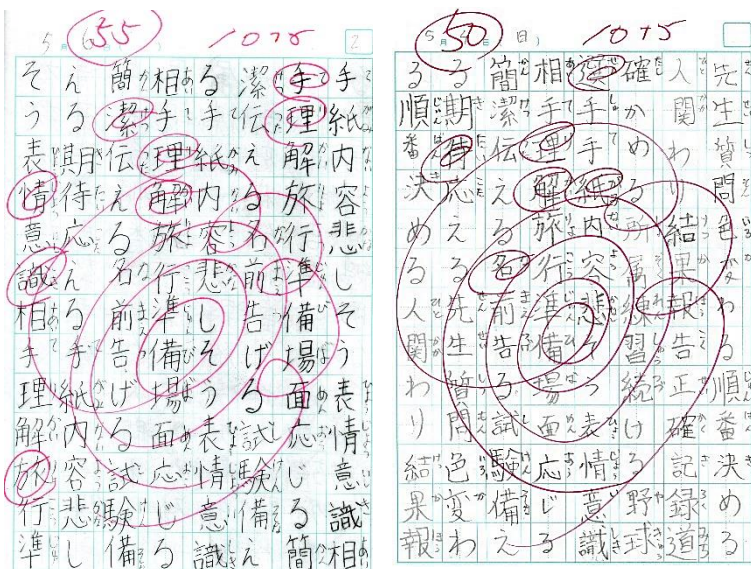 5月6 55
10+5
2
手紙内容悲しそう表情意識相
手理解旅行準備場面応じる簡
潔伝える名前告げる試験備え
る手紙内容悲しそう表情意識
相手理解旅行準備場面応じる
簡潔伝える名前告げる試験備
える期待応える手紙内容悲し
そう表情意識相手理解旅行準
5月 50 日
10+5
先生質問色変わる順番決める
人関わり結果報告正確記録道
確かめる所属練習続ける野球
選手手紙内容悲そう表情意識
相手理解旅行準備場面応じる
簡潔伝える名前告る試験備え
る期待応える先生質問色変わ
る順番決める人関わり結果報